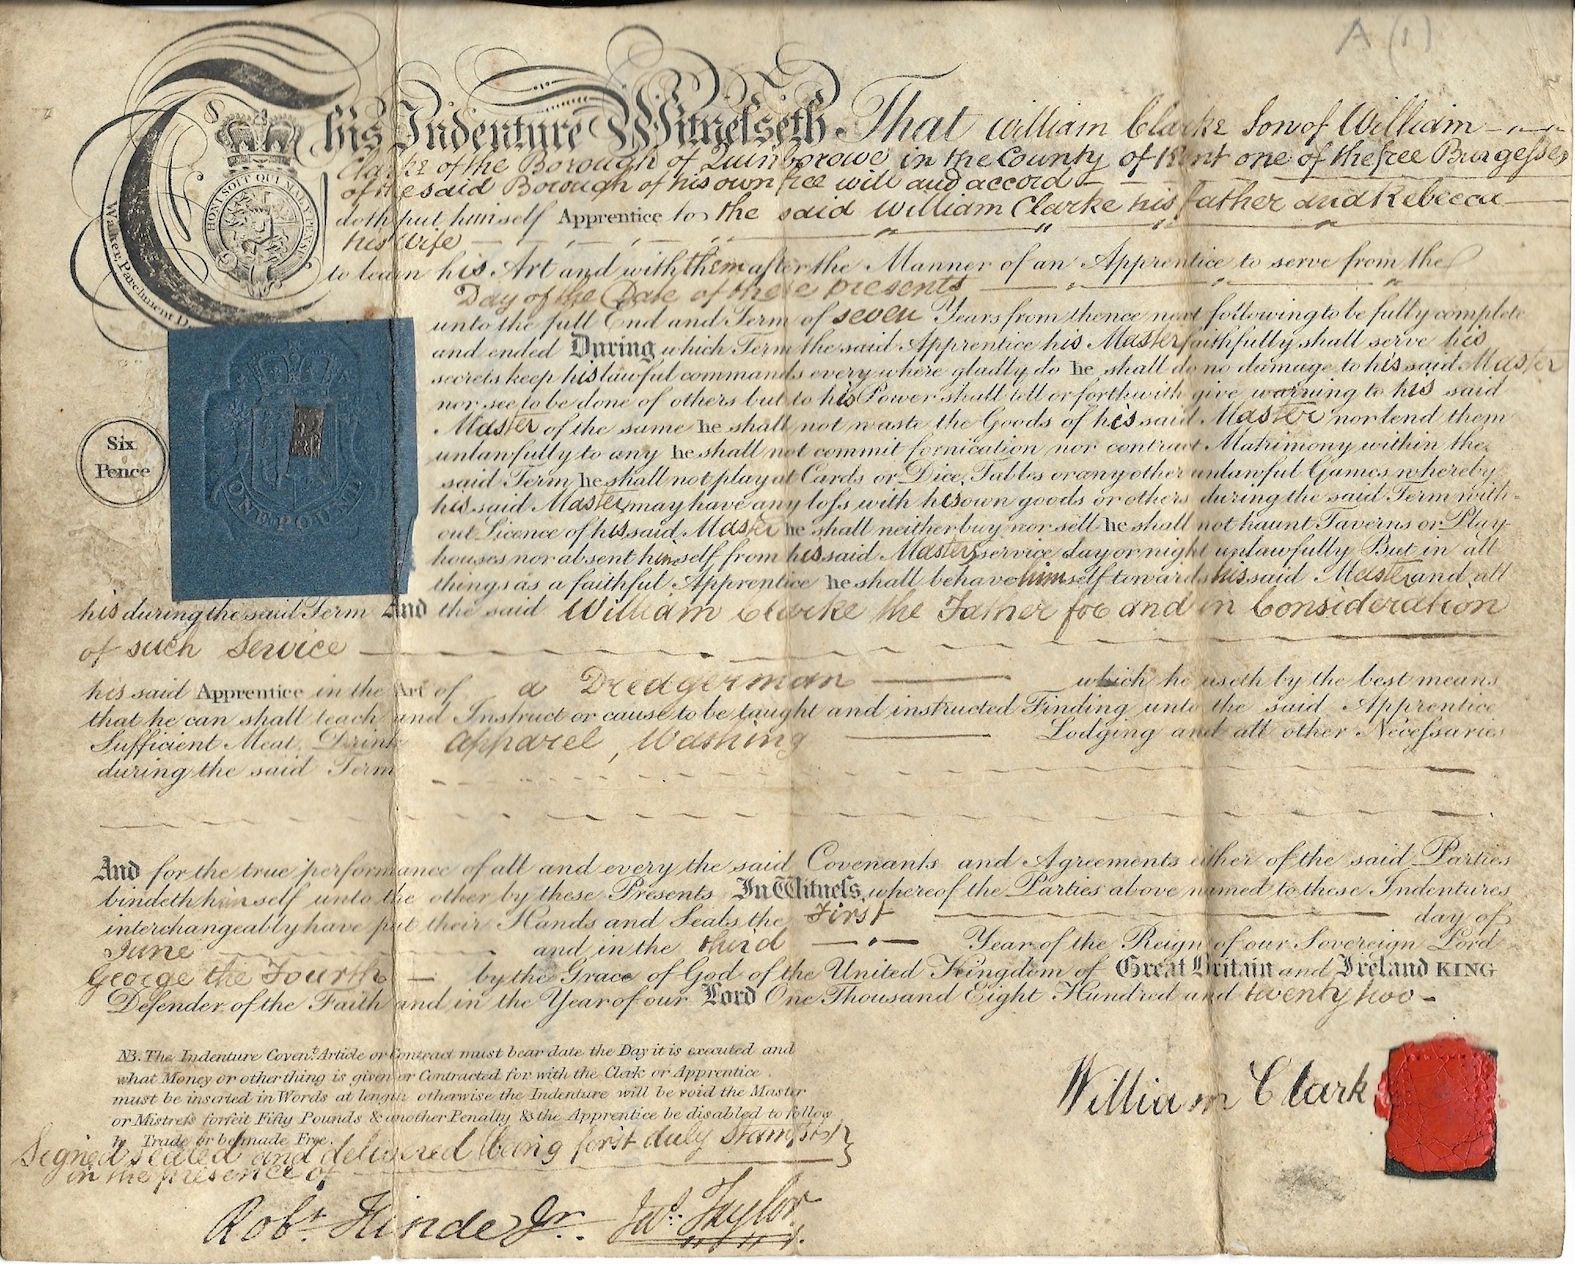 A (1)
This Indenture Witnesseth That William Clarke Son of William
Clarke of the Borough of Quinborowe in the County of Kent one of the free Burgesses
of the said Borough of his own free will and accord
doth put himself Apprentice to the said William Clarke his father and Rebecca
his Wife
to learn his Art and with them after the Manner of an Apprentice to serve from the
Day of the Date of these presents
unto the full End and Term of seven Years from thence next following to be fully complete
and ended During which Term the said Apprentice his Master faithfully shall serve his
secrets keep his lawful commands every where gladly do he shall do no damage to his said Master
nor see to be done of others but to his Power shall tell or forthwith give warning to his said
Master of the same he shall not waste the Goods of his said Master nor lend them
unlawfully to any he shall not commit fornication nor contract Matrimony within the
said Term he shall not play at Cards or Dice Tables or any other unlawful Games whereby
his said Master may have any loss with his own goods or others during the said Term with-
out Licence of his said Master he shall neither buy nor sell he shall not haunt Taverns or Play-
houses nor absent himself from his said Masters service day or night unlawfully But in all
things as a faithful Apprentice he shall behave himself towards his said Master and all
his during the said Term And the said William Clarke the Father for and in Consideration
of such Service
his said Apprentice in the Art of a Dredgerman which he useth by the best means
that he can shall teach and Instruct or cause to be taught and instructed Finding unto the said Apprentice
Sufficient Meat, Drink apparel, Washing Lodging and all other Necessaries
during the said Term
And for the true performance of all and every the said Covenants and Agreements either of the said Parties
bindeth himself unto the other by these Presents In Witness whereof the Parties above named to these Indentures
interchangeably have put their Hands and Seals the First day of
June and in the third Year of the Reign of our Sovereign Lord
George the Fourth by the Grace of God of the United Kingdom of Great Britain and Ireland KING
Defender of the Faith and in the Year of our Lord One Thousand Eight Hundred and twenty two
HONI SOIT QUI MAL Y PENSE
Walker, Parchment D
ONE POUND
Six
Pence
NB. The Indenture Covent. Article or Contract must bear date the Day it is executed and
what Money or other thing is given or Contracted for with the Clerk or Apprentice
must be inserted in Words at length otherwise the Indenture will be void the Master
or Mistress forfeit Fifty Pounds & another Penalty & the Apprentice be disabled to follow
Trade or be made Free.
Signed sealed and delivered (being first duly Stampt)
in the presence of
Robt. Hinde Jr. Jas. Taylor
William Clark